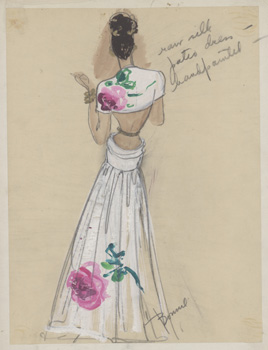 raw silk
patio dress
handpainted
Bonnie